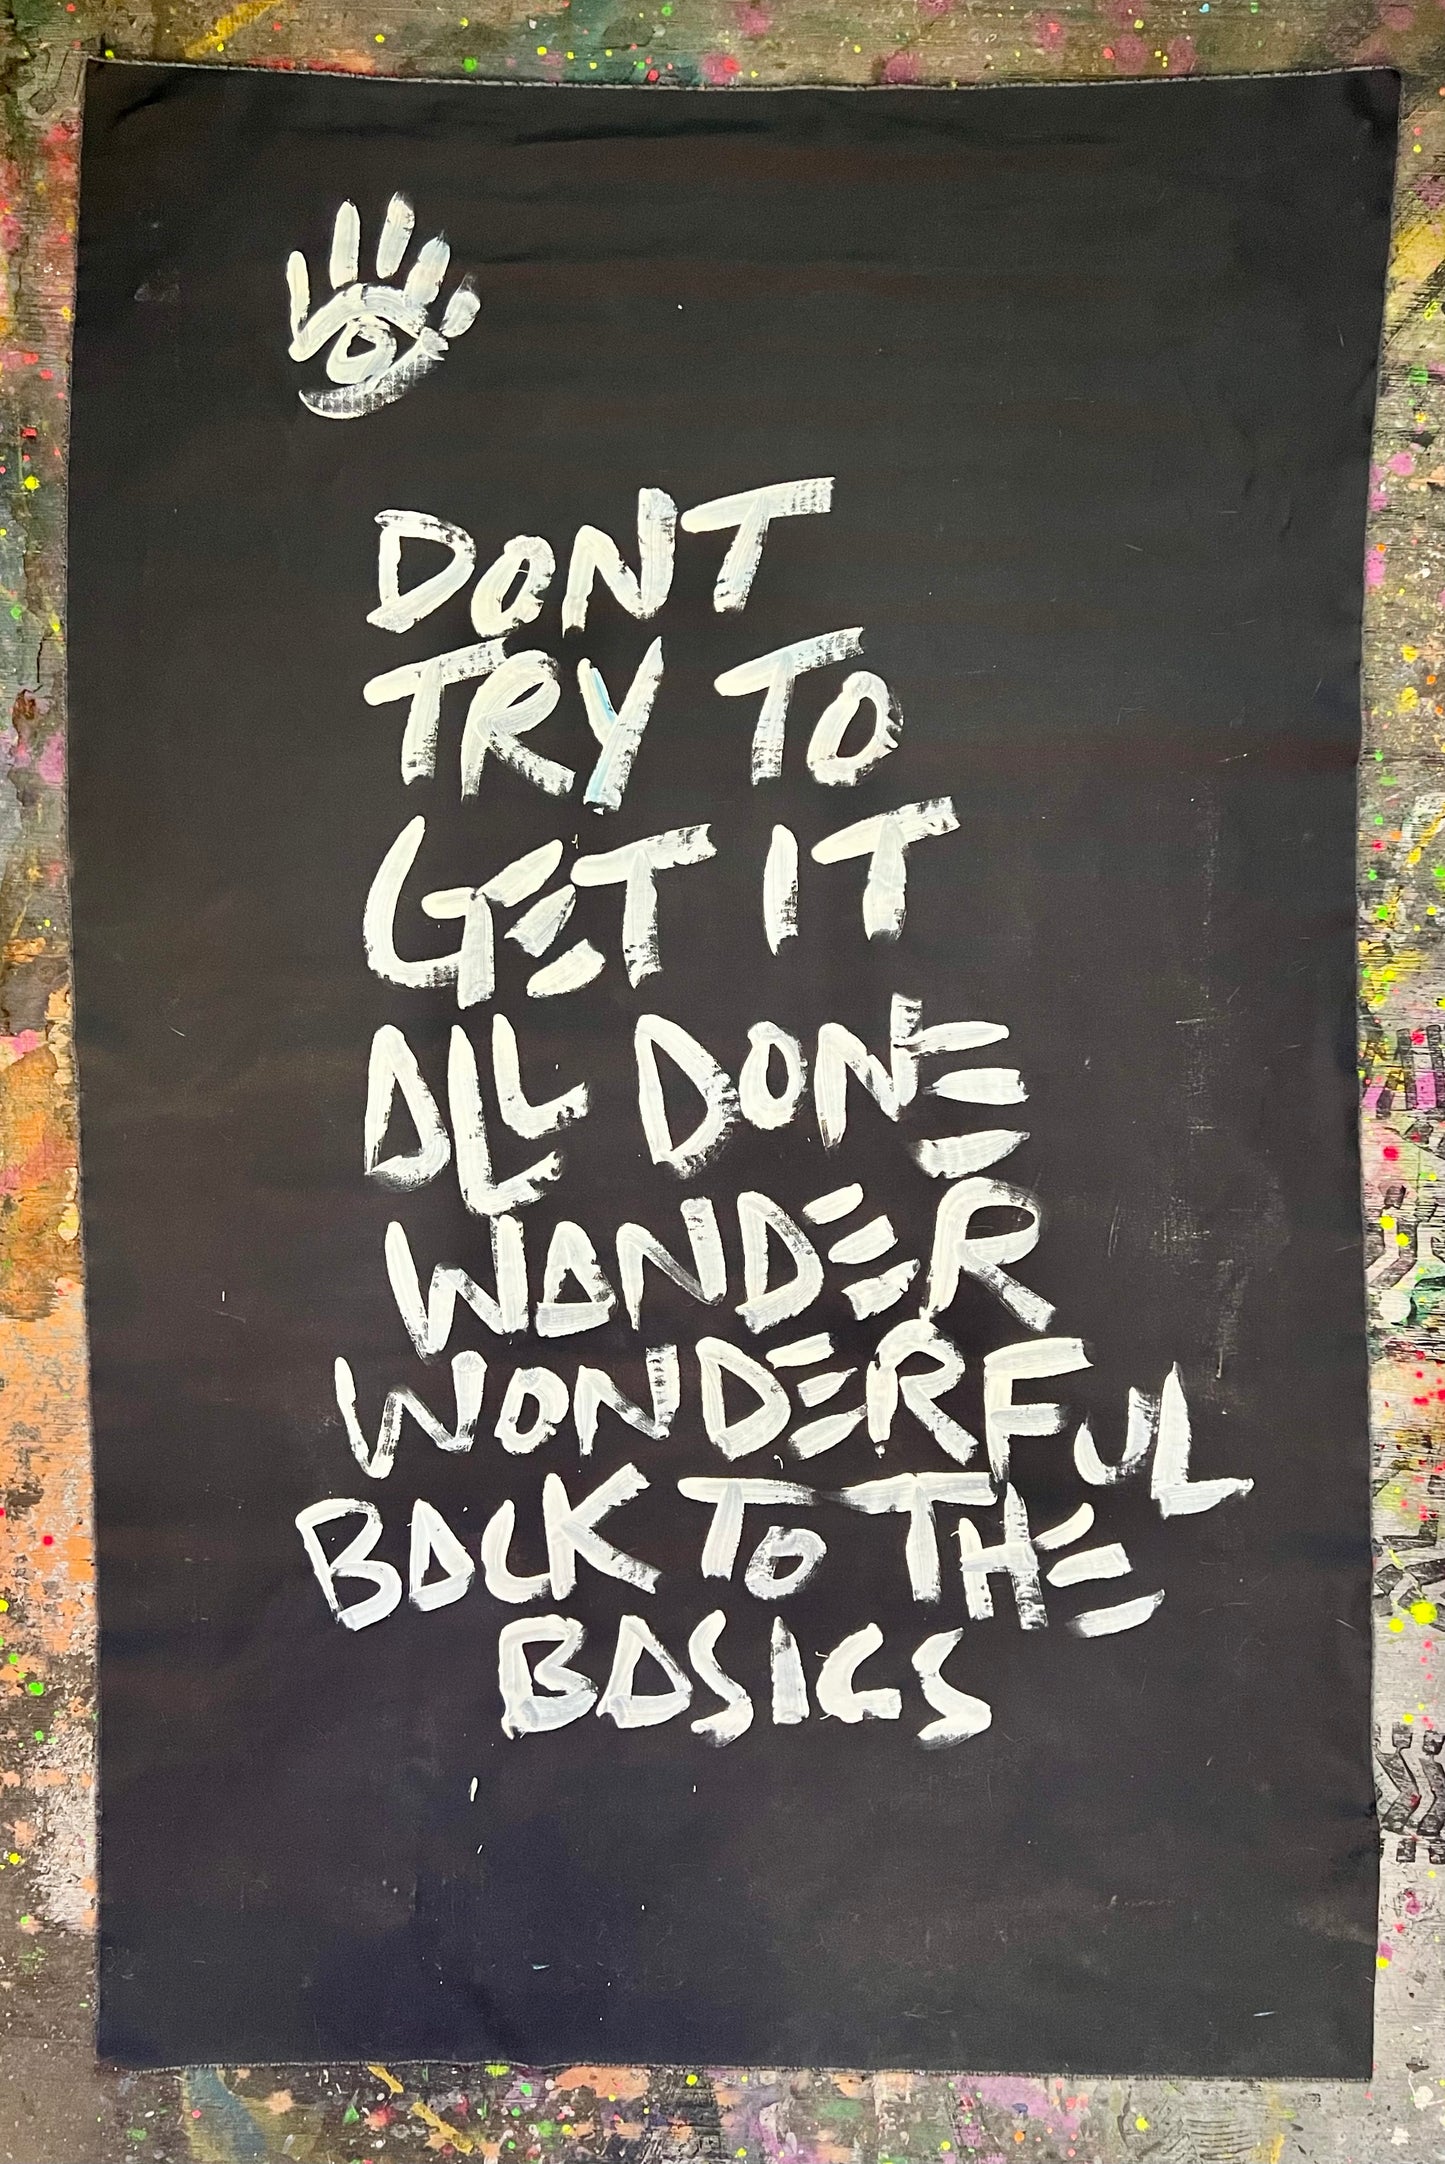 DONT
TRY TO
GET IT
ALL DONE
WANDER
WONDERFUL
BACK TO THE
BASICS